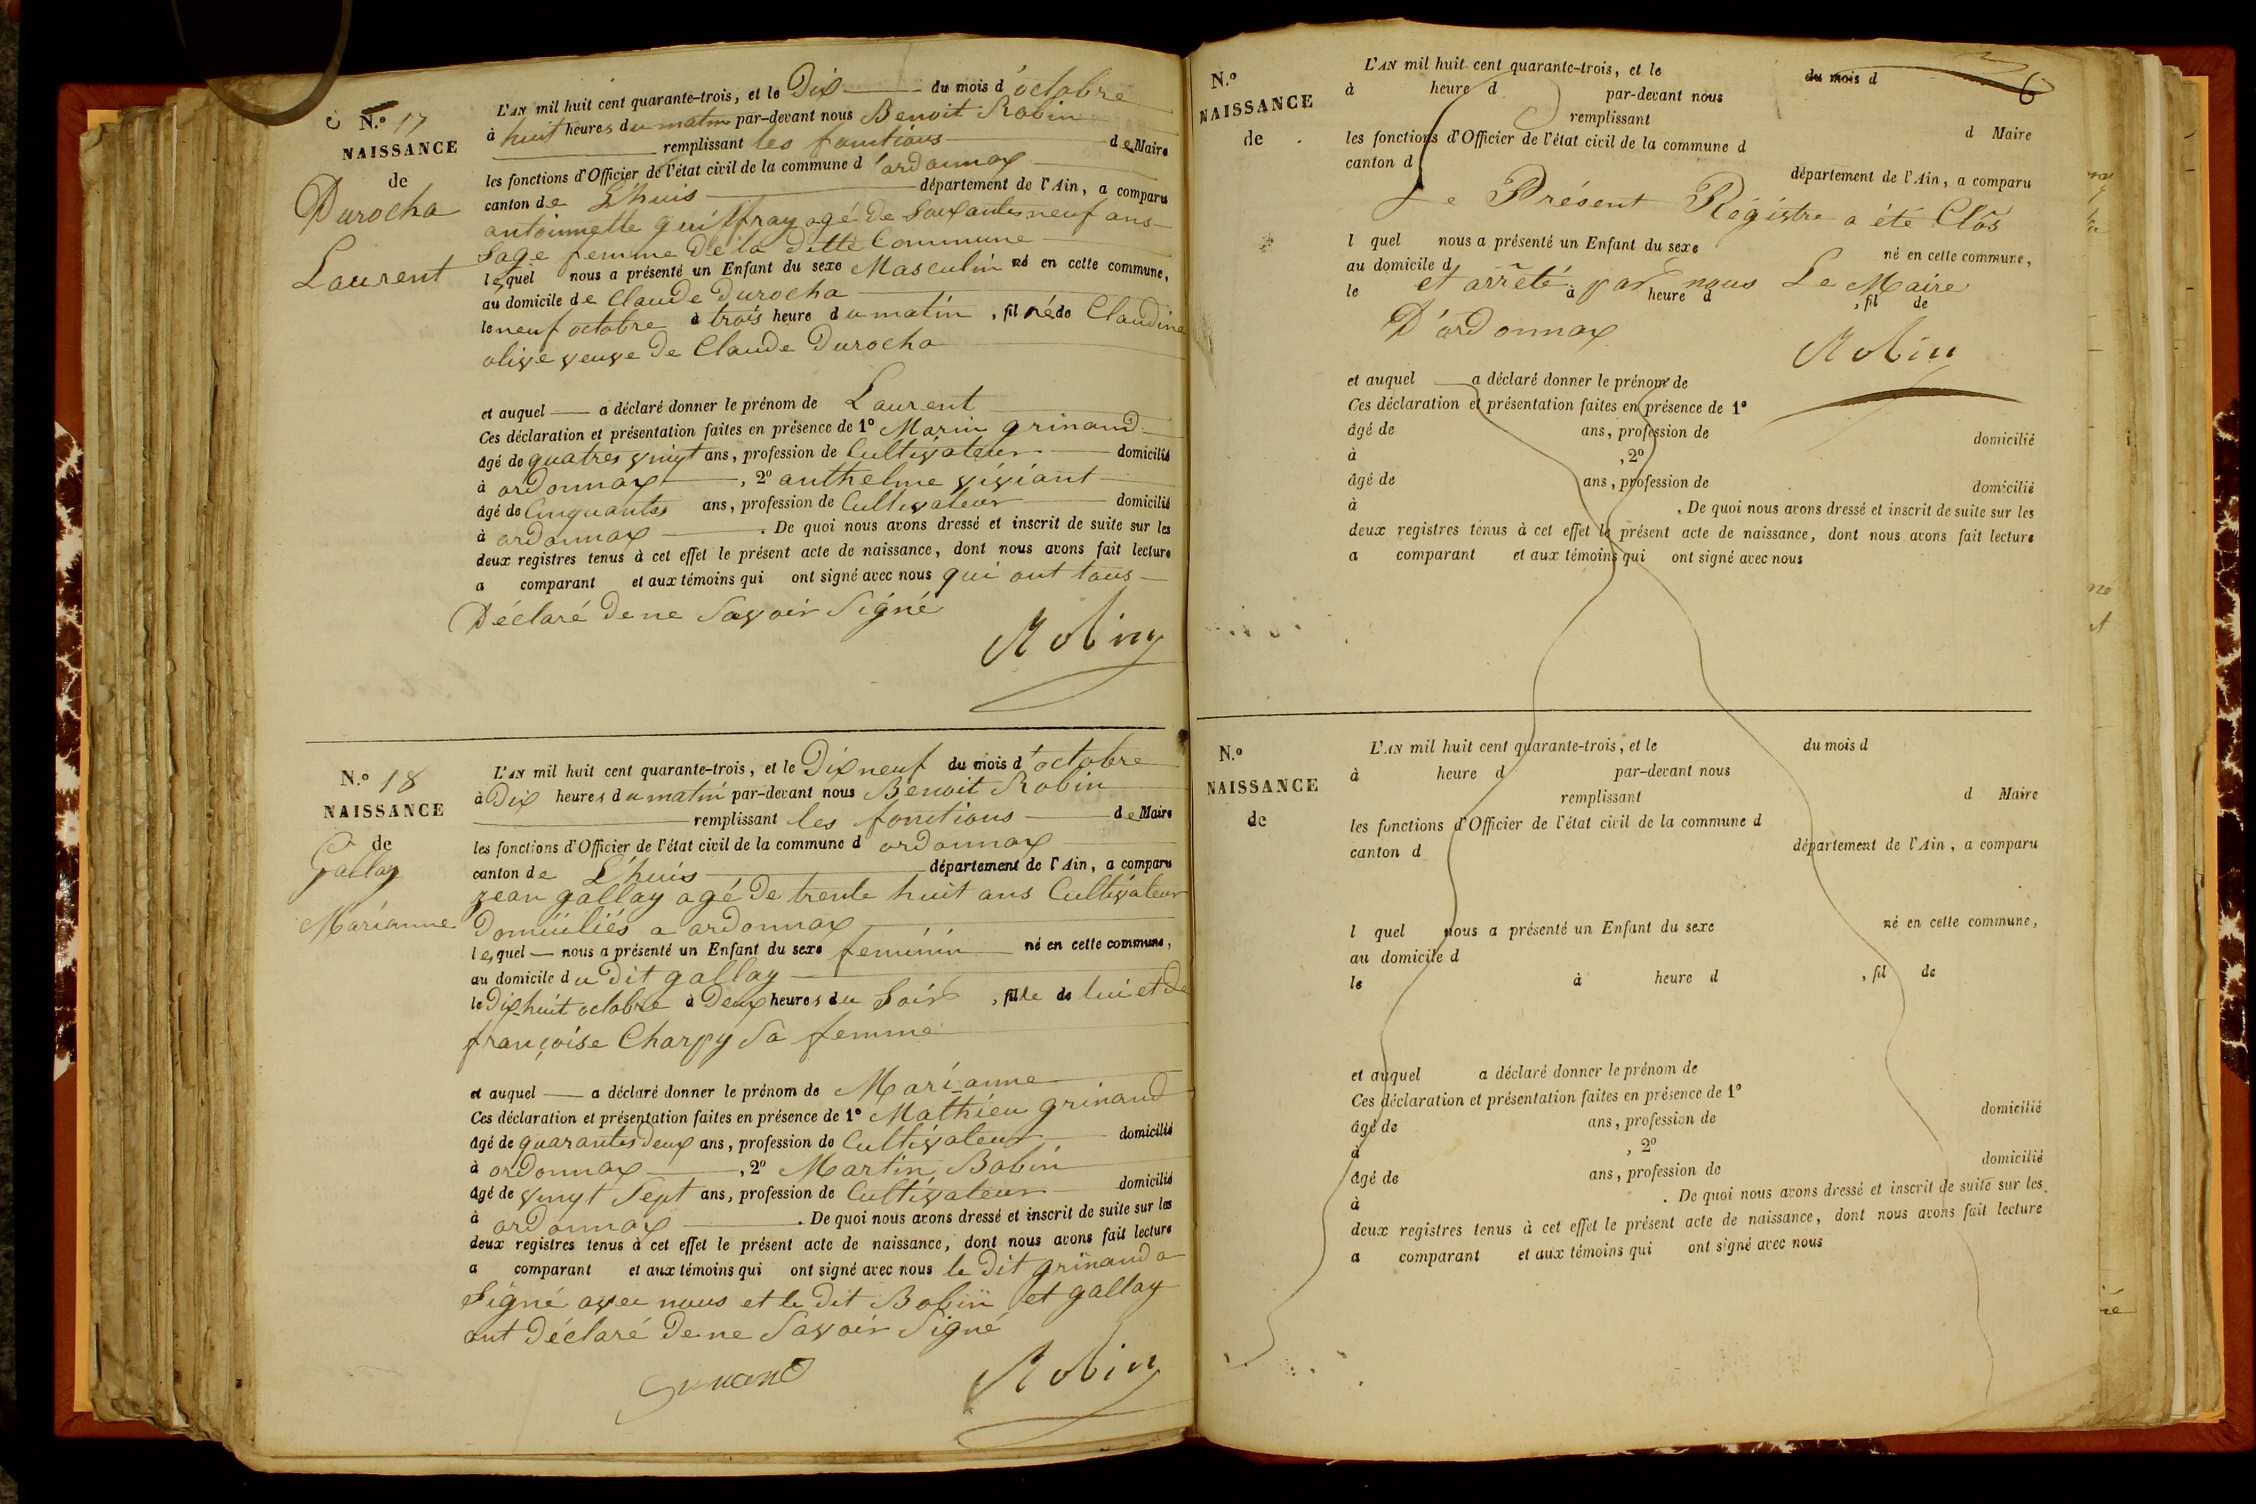 N.º 17
NAISSANCE
de
Durocha
Laurent
L'AN mil huit cent quarante-trois, et le Dix du mois d'octobre
à huit heures du matin par-devant nous Benoit Robin
remplissant les fonctions de Maire
les fonctions d'Officier de l'état civil de la commune d'ordonnax
canton de L'huis département de l'Ain, a comparu
antoinnette guiffray agé de Soixantes neuf ans
Sage femme de la ditte Commune
lequel nous a présenté un Enfant du sexe Masculin né en cette commune,
au domicile de Claude Durocha
le neuf octobre à trois heure du matin, fil né de Claudine
olive veuve de Claude Durocha
et auquel a déclaré donner le prénom de Laurent
Ces déclaration et présentation faites en présence de 1º Marin grinand
âgé de quatres vingt ans, profession de Cultivateur domicilié
à ordonnax, 2º anthelme viviant
âgé de Cinquantes ans, profession de Cultivateur domicilié
à ordonnax. De quoi nous avons dressé et inscrit de suite sur les
deux registres tenus à cet effet le présent acte de naissance, dont nous avons fait lecture
a comparant et aux témoins qui ont signé avec nous qui ont tous
Déclaré de ne Savoir Signé
Robin
N.º 18
NAISSANCE
de
Gallay
Marianne
L'AN mil huit cent quarante-trois, et le Dix neuf du mois d'octobre
à Dix heures du matin par-devant nous Benoit Robin
remplissant les fonctions de Maire
les fonctions d'Officier de l'état civil de la commune d ordonnax
canton de L'huis département de l'Ain, a comparu
jean gallay agé de trente huit ans Cultivateur
Domiciliés a ordonnax
lequel nous a présenté un Enfant du sexe feminin né en cette commune,
au domicile du dit gallay
le Dix-huit octobre à Deux heures du Soir, fille de lui et de
françoise Charpy Sa femme
et auquel a déclaré donner le prénom de Marianne
Ces déclaration et présentation faites en présence de 1º Mathieu grinand
âgé de quarantes deux ans, profession de Cultivateur domicilié
à ordonnax, 2º Martin Bobin
âgé de vingt Sept ans, profession de Cultivateur domicilié
à ordonnax. De quoi nous avons dressé et inscrit de suite sur les
deux registres tenus à cet effet le présent acte de naissance, dont nous avons fait lecture
a comparant et aux témoins qui ont signé avec nous le dit grinand a
Signé avec nous et le dit Bobin et gallay
ont Déclaré de ne Savoir Signé
Grinand Robin
6
N.º
NAISSANCE
de
L'AN mil huit cent quarante-trois, et le du mois d
à heure d par-devant nous
remplissant d Maire
les fonctions d'Officier de l'état civil de la commune d
canton d département de l'Ain, a comparu
Le Présent Régistre a été Clos
l quel nous a présenté un Enfant du sexe né en cette commune,
au domicile d
et arrêté par nous Le Maire
le à heure d, fil de
D'ordonnax
Robin
et auquel a déclaré donner le prénom de
Ces déclaration et présentation faites en présence de 1º
âgé de ans, profession de domicilié
à, 2º
âgé de ans, profession de domicilié
à. De quoi nous avons dressé et inscrit de suite sur les
deux registres tenus à cet effet le présent acte de naissance, dont nous avons fait lecture
a comparant et aux témoins qui ont signé avec nous
N.º
NAISSANCE
de
L'AN mil huit cent quarante-trois, et le du mois d
à heure d par-devant nous
remplissant d Maire
les fonctions d'Officier de l'état civil de la commune d
canton d département de l'Ain, a comparu
l quel nous a présenté un Enfant du sexe né en cette commune,
au domicile d
le à heure d, fil de
et auquel a déclaré donner le prénom de
Ces déclaration et présentation faites en présence de 1º
âgé de ans, profession de domicilié
à, 2º
âgé de ans, profession de domicilié
à. De quoi nous avons dressé et inscrit de suite sur les
deux registres tenus à cet effet le présent acte de naissance, dont nous avons fait lecture
a comparant et aux témoins qui ont signé avec nous